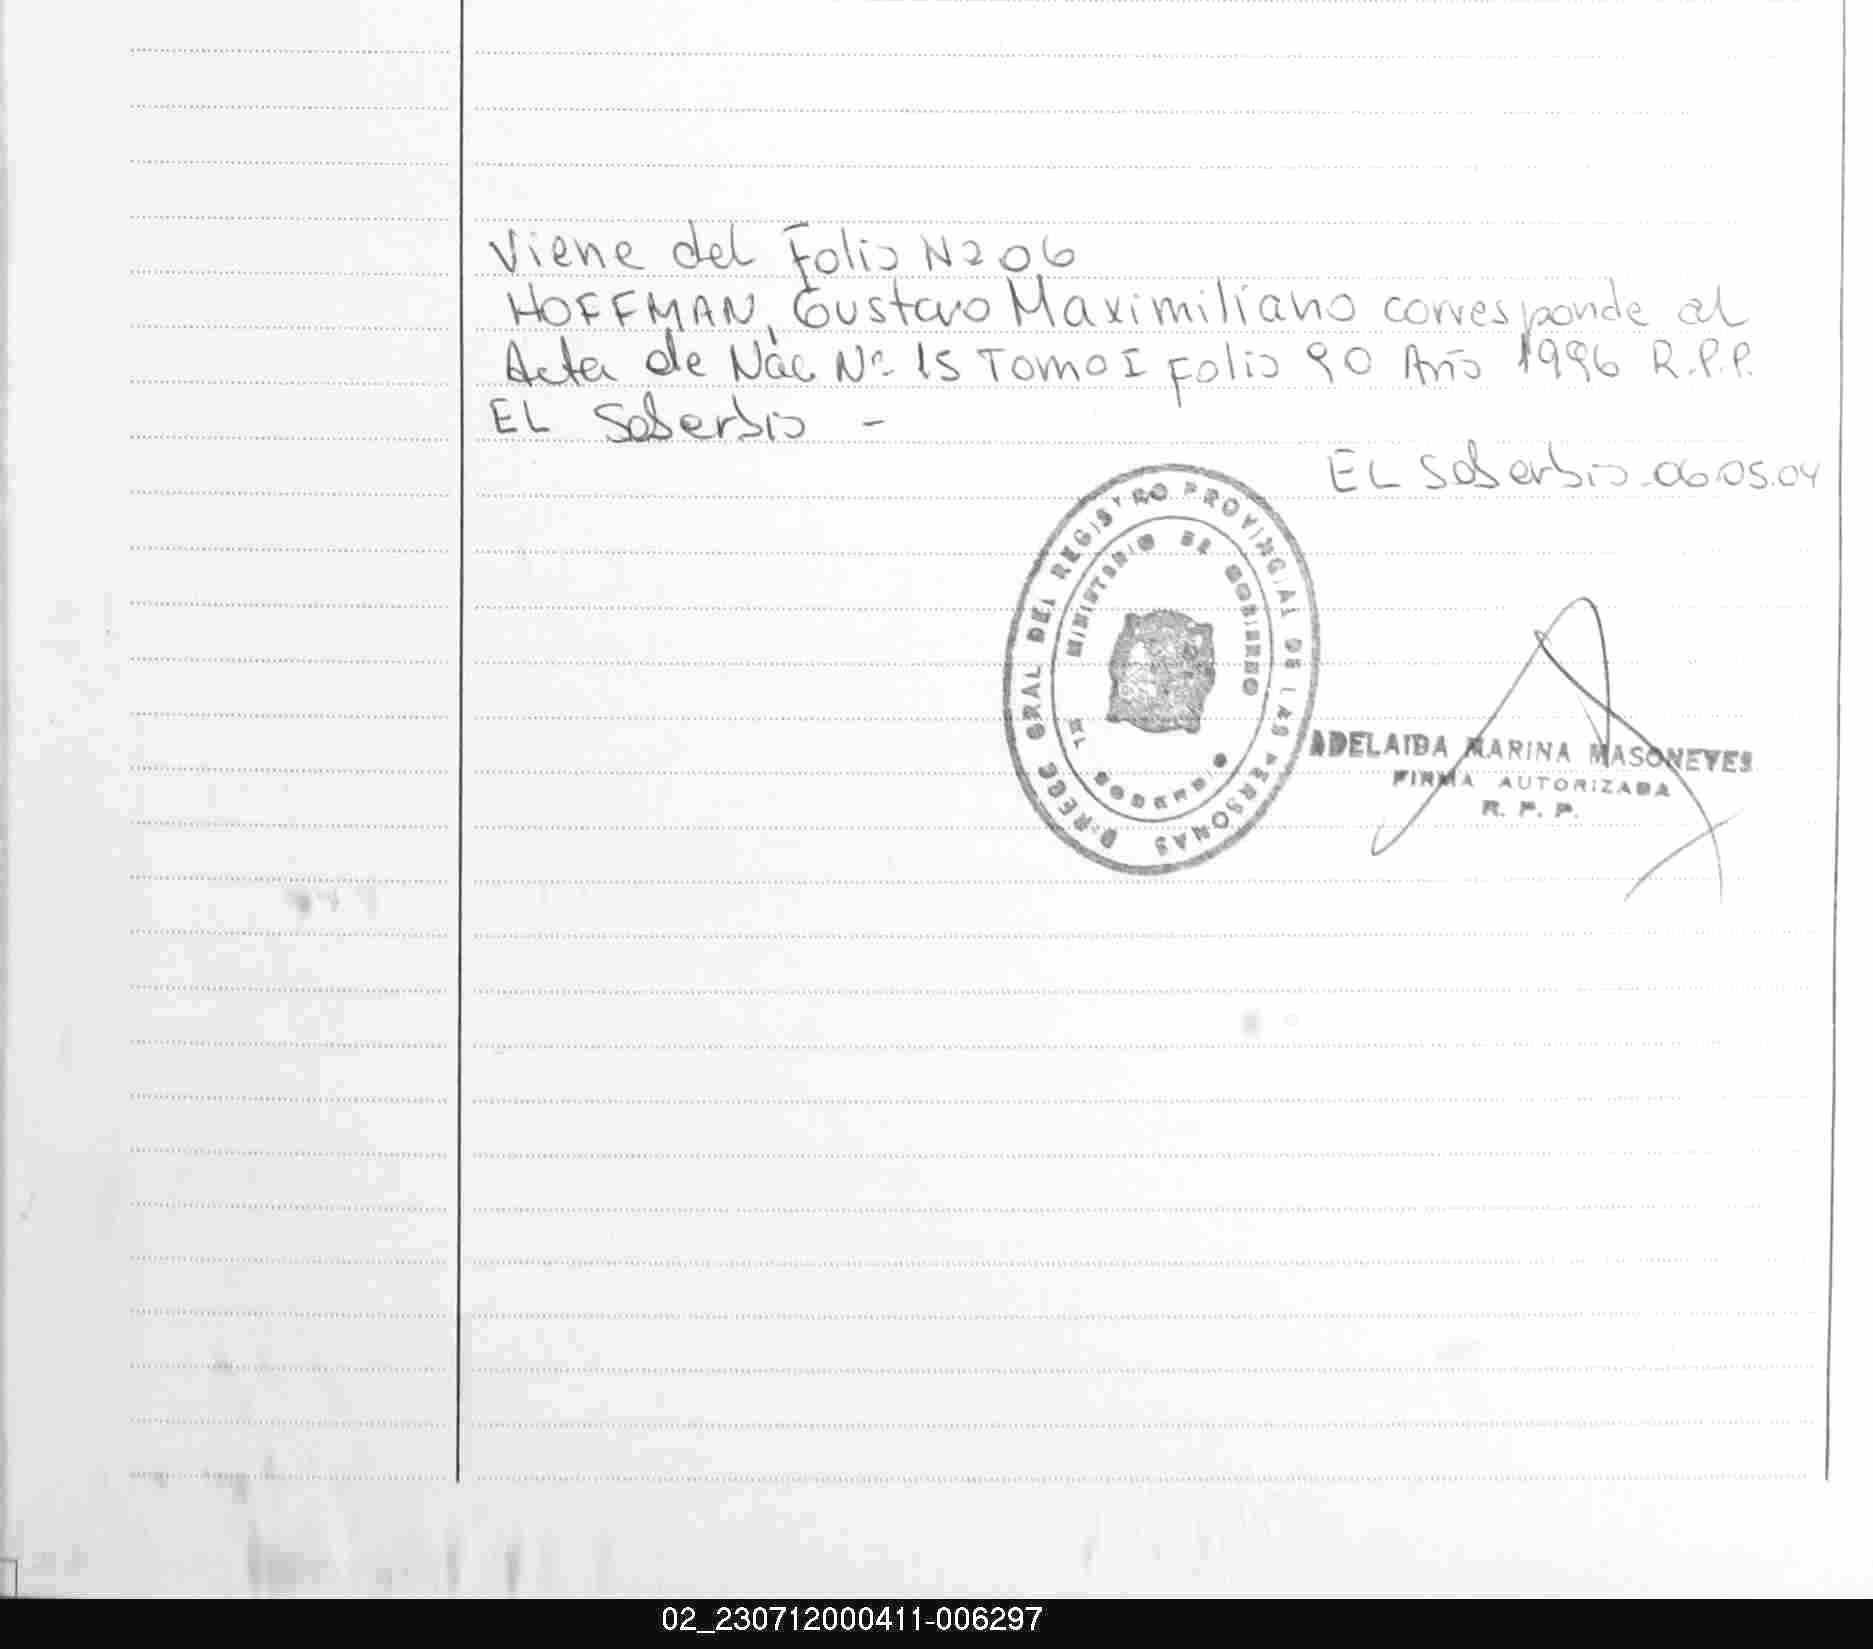 Viene del Folio Nº 06
HOFFMAN, Gustavo Maximiliano corresponde al
Acta de Nac Nº 15 Tomo I Folio 90 Año 1996 R.P.P.
EL Soberbio -
EL Soberbio 06.05.04
DIRECC GRAL DEL REGISTRO PROVINCIAL DE LAS PERSONAS
MINISTERIO DE GOBIERNO
EL SOBERBIO
ADELAIDA MARINA MASONEVES
FIRMA AUTORIZADA
R. P. P.
02_230712000411-006297